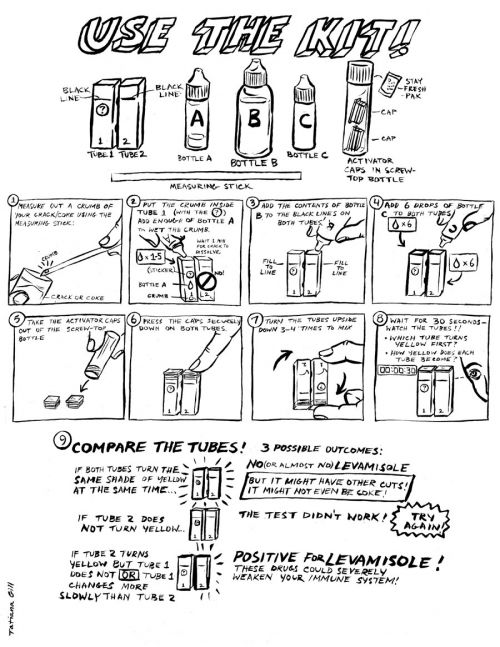 USE THE KIT!
BLACK
LINE
?
1
2
TUBE 1
TUBE 2
BLACK
LINE
A
BOTTLE A
B
BOTTLE B
C
BOTTLE C
STAY
FRESH
PAK
CAP
CAP
ACTIVATOR
CAPS IN SCREW-
TOP BOTTLE
MEASURING STICK
1 MEASURE OUT A CRUMB OF
YOUR CRACK/COKE USING THE
MEASURING STICK:
CRUMB
CRACK OR COKE
2 PUT THE CRUMB INSIDE
TUBE 1 (WITH THE ?)
ADD ENOUGH OF BOTTLE A
TO WET THE CRUMB.
WAIT 1 MIN
FOR CRACK TO
DISSOLVE.
x 1-5
(STICKER)
BOTTLE A
CRUMB
NO!
1
2
3 ADD THE CONTENTS OF BOTTLE
B TO THE BLACK LINES ON
BOTH TUBES
FILL
TO
LINE
FILL
TO
LINE
?
1
2
4 ADD 6 DROPS OF BOTTLE
C TO BOTH TUBES
x 6
x 6
?
1
2
5 TAKE THE ACTIVATOR CAPS
OUT OF THE SCREW-TOP
BOTTLE
6 PRESS THE CAPS SECURELY
DOWN ON BOTH TUBES.
?
1
2
7 TURN THE TUBES UPSIDE
DOWN 3-4 TIMES TO MIX
8 WAIT FOR 30 SECONDS-
WATCH THE TUBES!!
• WHICH TUBE TURNS
YELLOW FIRST?
• HOW YELLOW DOES EACH
TUBE BECOME?
00:00:30
?
1
2
9 COMPARE THE TUBES! 3 POSSIBLE OUTCOMES:
IF BOTH TUBES TURN THE
SAME SHADE OF YELLOW
AT THE SAME TIME...
NO (OR ALMOST NO) LEVAMISOLE
BUT IT MIGHT HAVE OTHER CUTS!
IT MIGHT NOT EVEN BE COKE!
IF TUBE 2 DOES
NOT TURN YELLOW...
THE TEST DIDN'T WORK!
TRY
AGAIN!
IF TUBE 2 TURNS
YELLOW BUT TUBE 1
DOES NOT OR TUBE 1
CHANGES MORE
SLOWLY THAN TUBE 2
POSITIVE FOR LEVAMISOLE!
THESE DRUGS COULD SEVERELY
WEAKEN YOUR IMMUNE SYSTEM!
Tatiana Gill